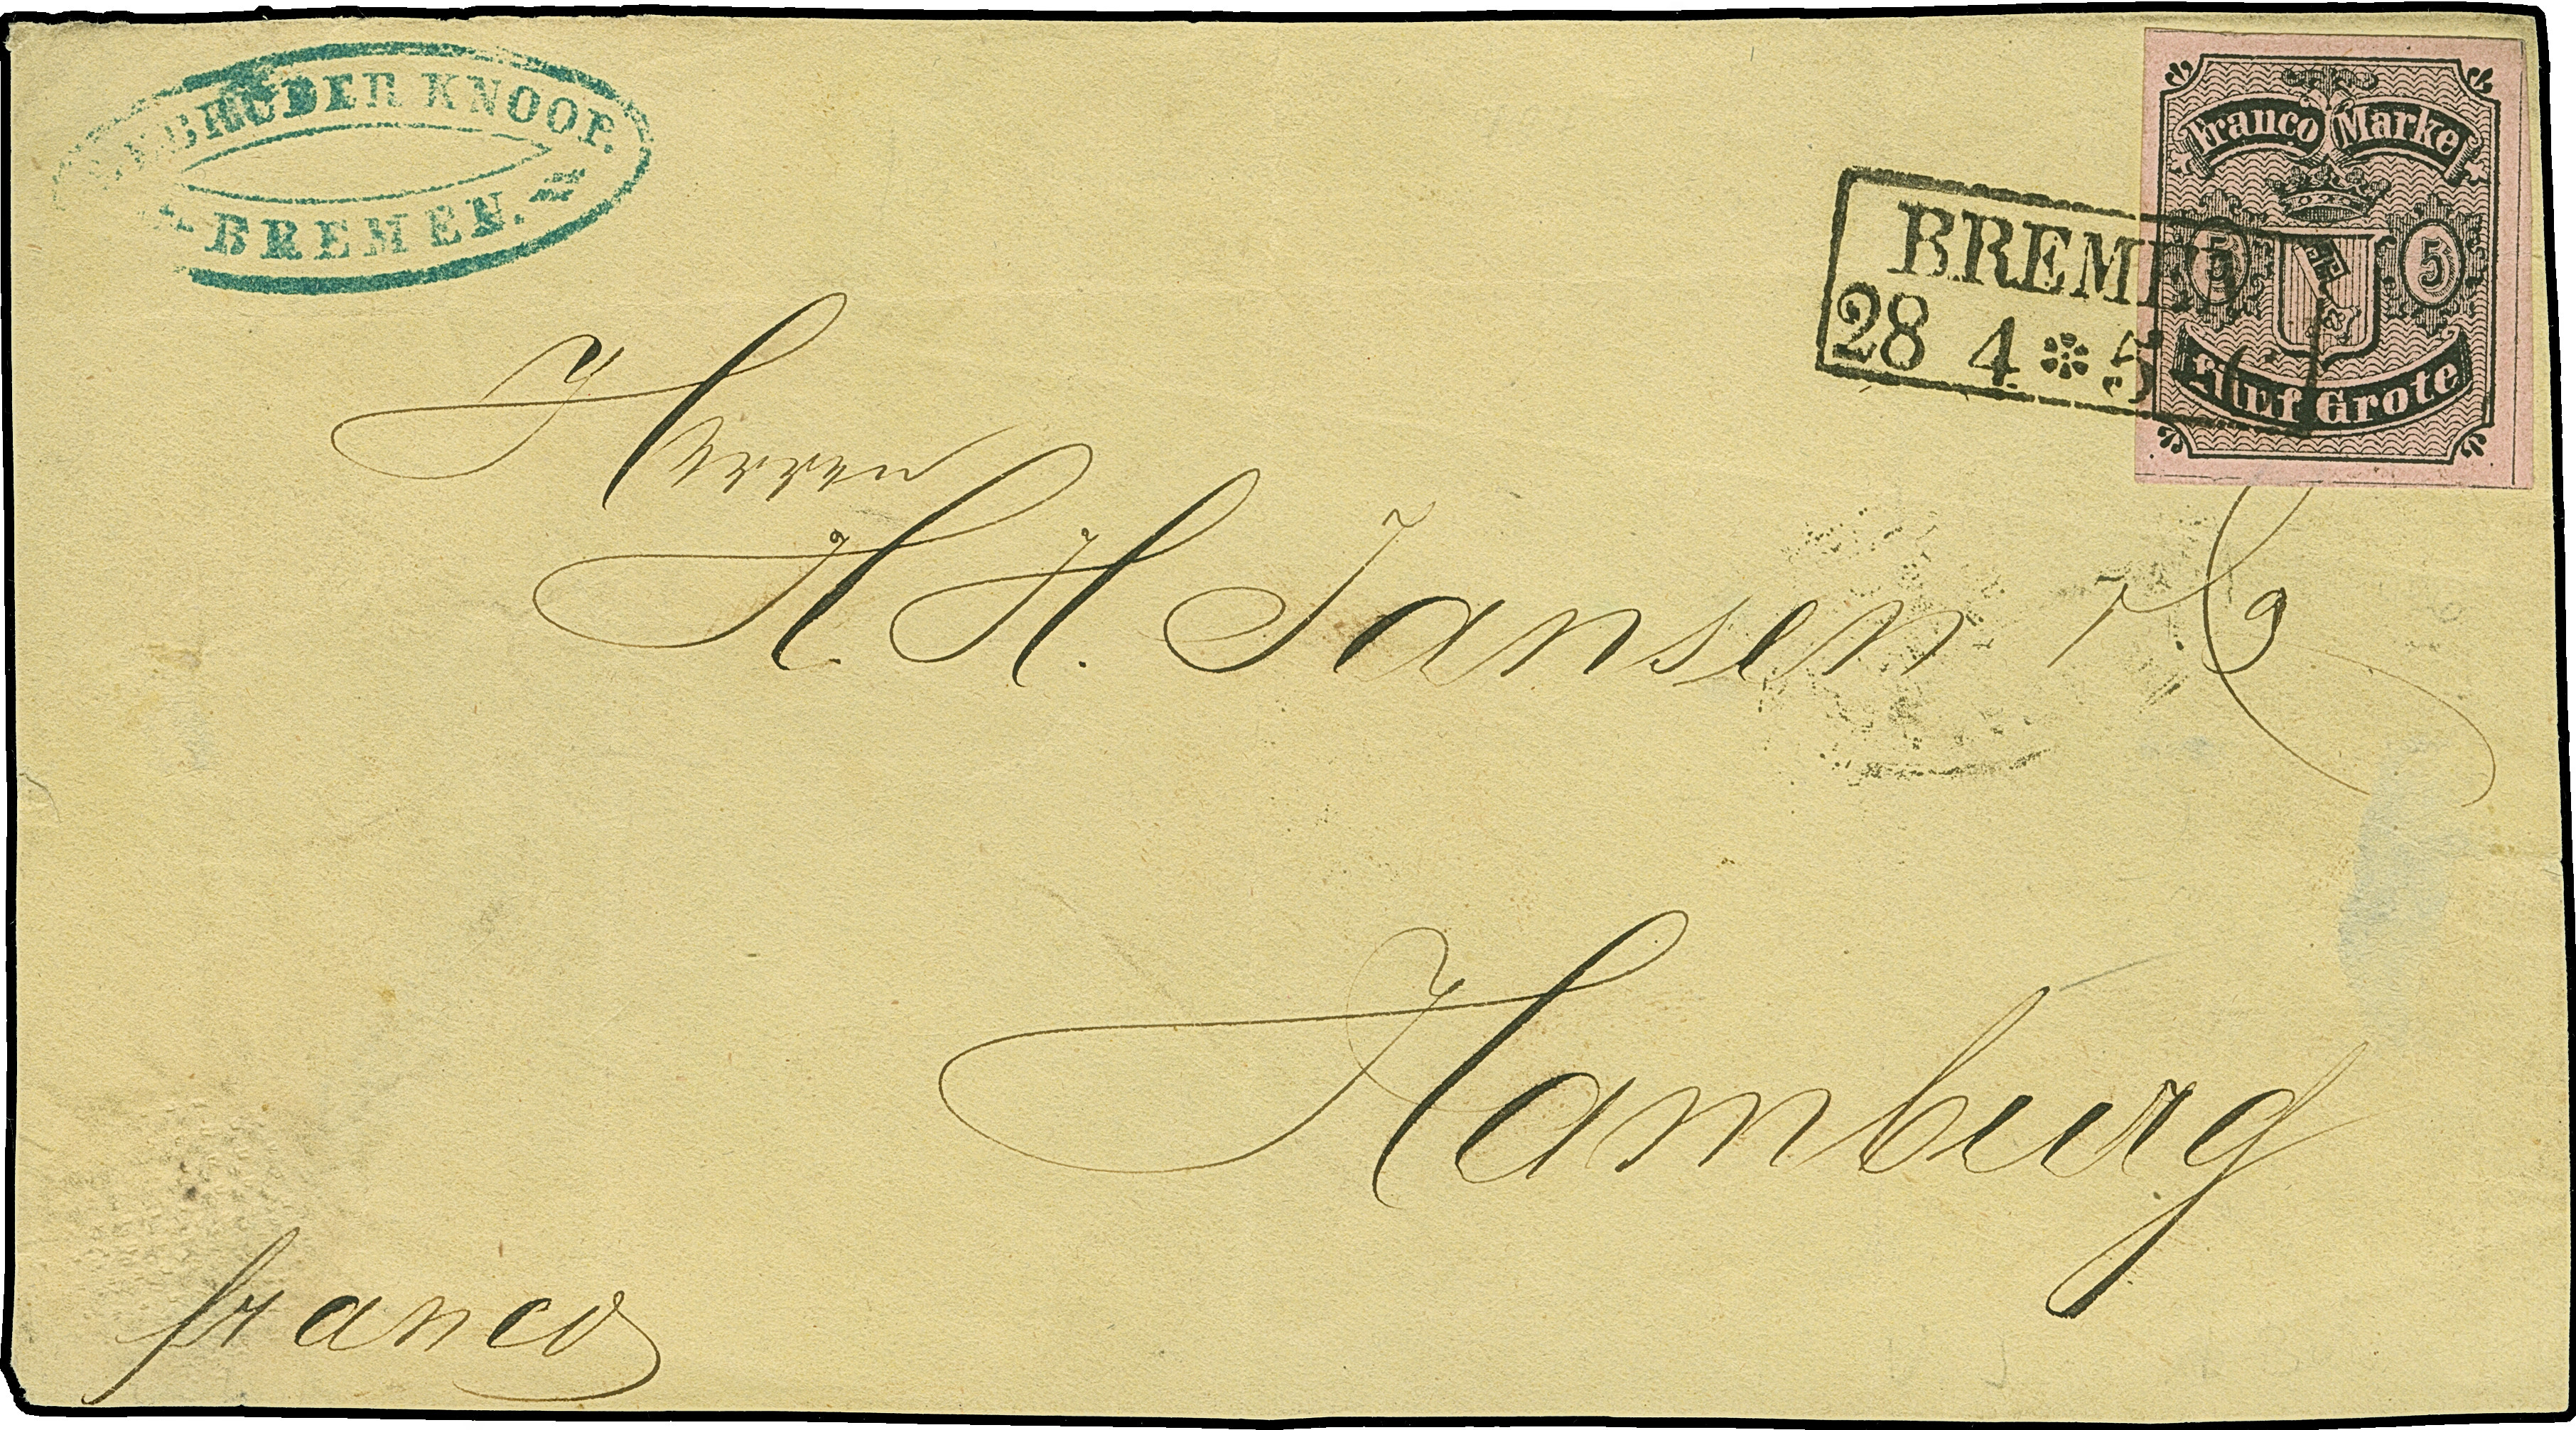 GEBRUDER KNOOP.
BREMEN.
Franco Marke
5 5
Fünf Grote
BREMEN
28 4 * 5
Herrn
H. H. Jansen & Co
Hamburg
franco